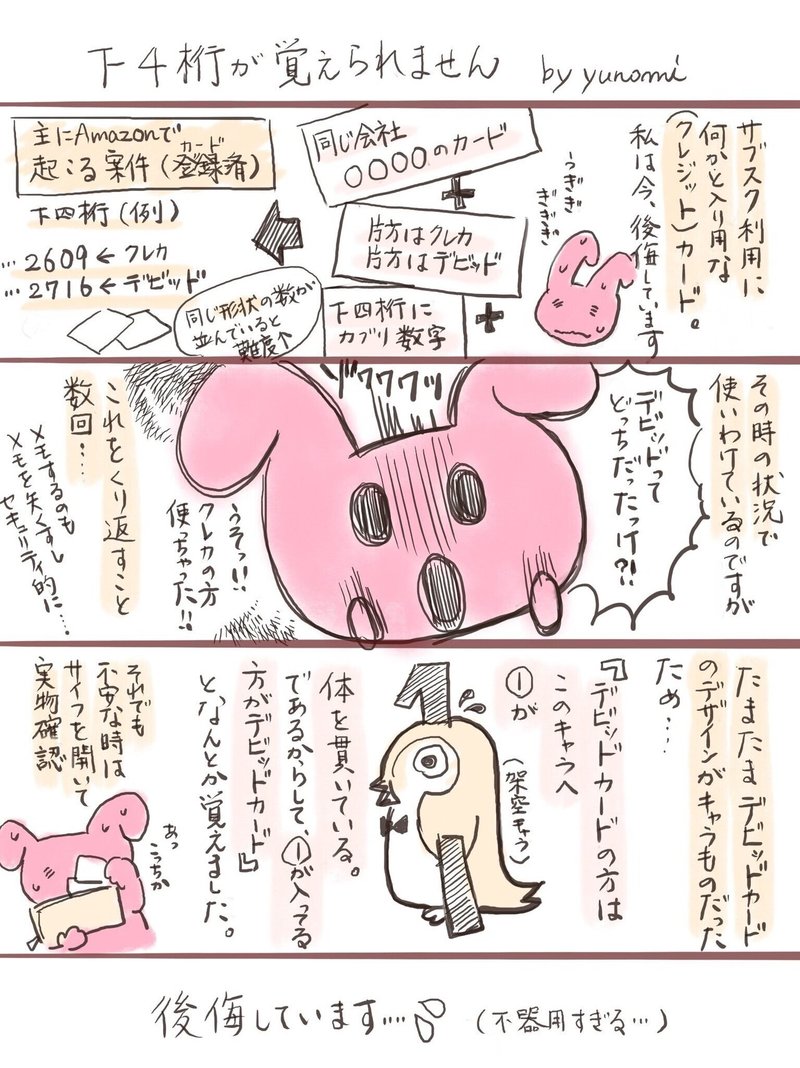 下4桁が覚えられません by yunomi
サブスク利用に
何かと入り用な
(クレジット)カード。
私は今、後悔しています
うぎぎ
ぎぎぎ
同じ会社
〇〇〇〇のカード
+
片方はクレカ
片方はデビッド
+
下四桁に
カブリ数字
同じ形状の数が
並んでいると
難度↑
主にAmazonで
起こる案件(登録済)
カード
下四桁(例)
…2609←クレカ
…2716←デビッド
その時の状況で
使いわけているのですが
デビッドって
どっちだったっけ?!
ゾワワワッ
うそっ!!
クレカの方
使っちゃった!!
これをくり返すこと
数回…
メモするのも
メモを失くすし
セキュリティ的に…
たまたまデビッドカード
のデザインがキャラものだった
ため…
『デビッドカードの方は
このキャラへ
①が
(架空キャラ)
1
体を貫いている。
であるからして、①が入ってる
方がデビッドカード』
となんとか覚えました。
それでも
不安な時は
サイフを開いて
実物確認
あっ
こっちか
後悔しています…
(不器用すぎる…)